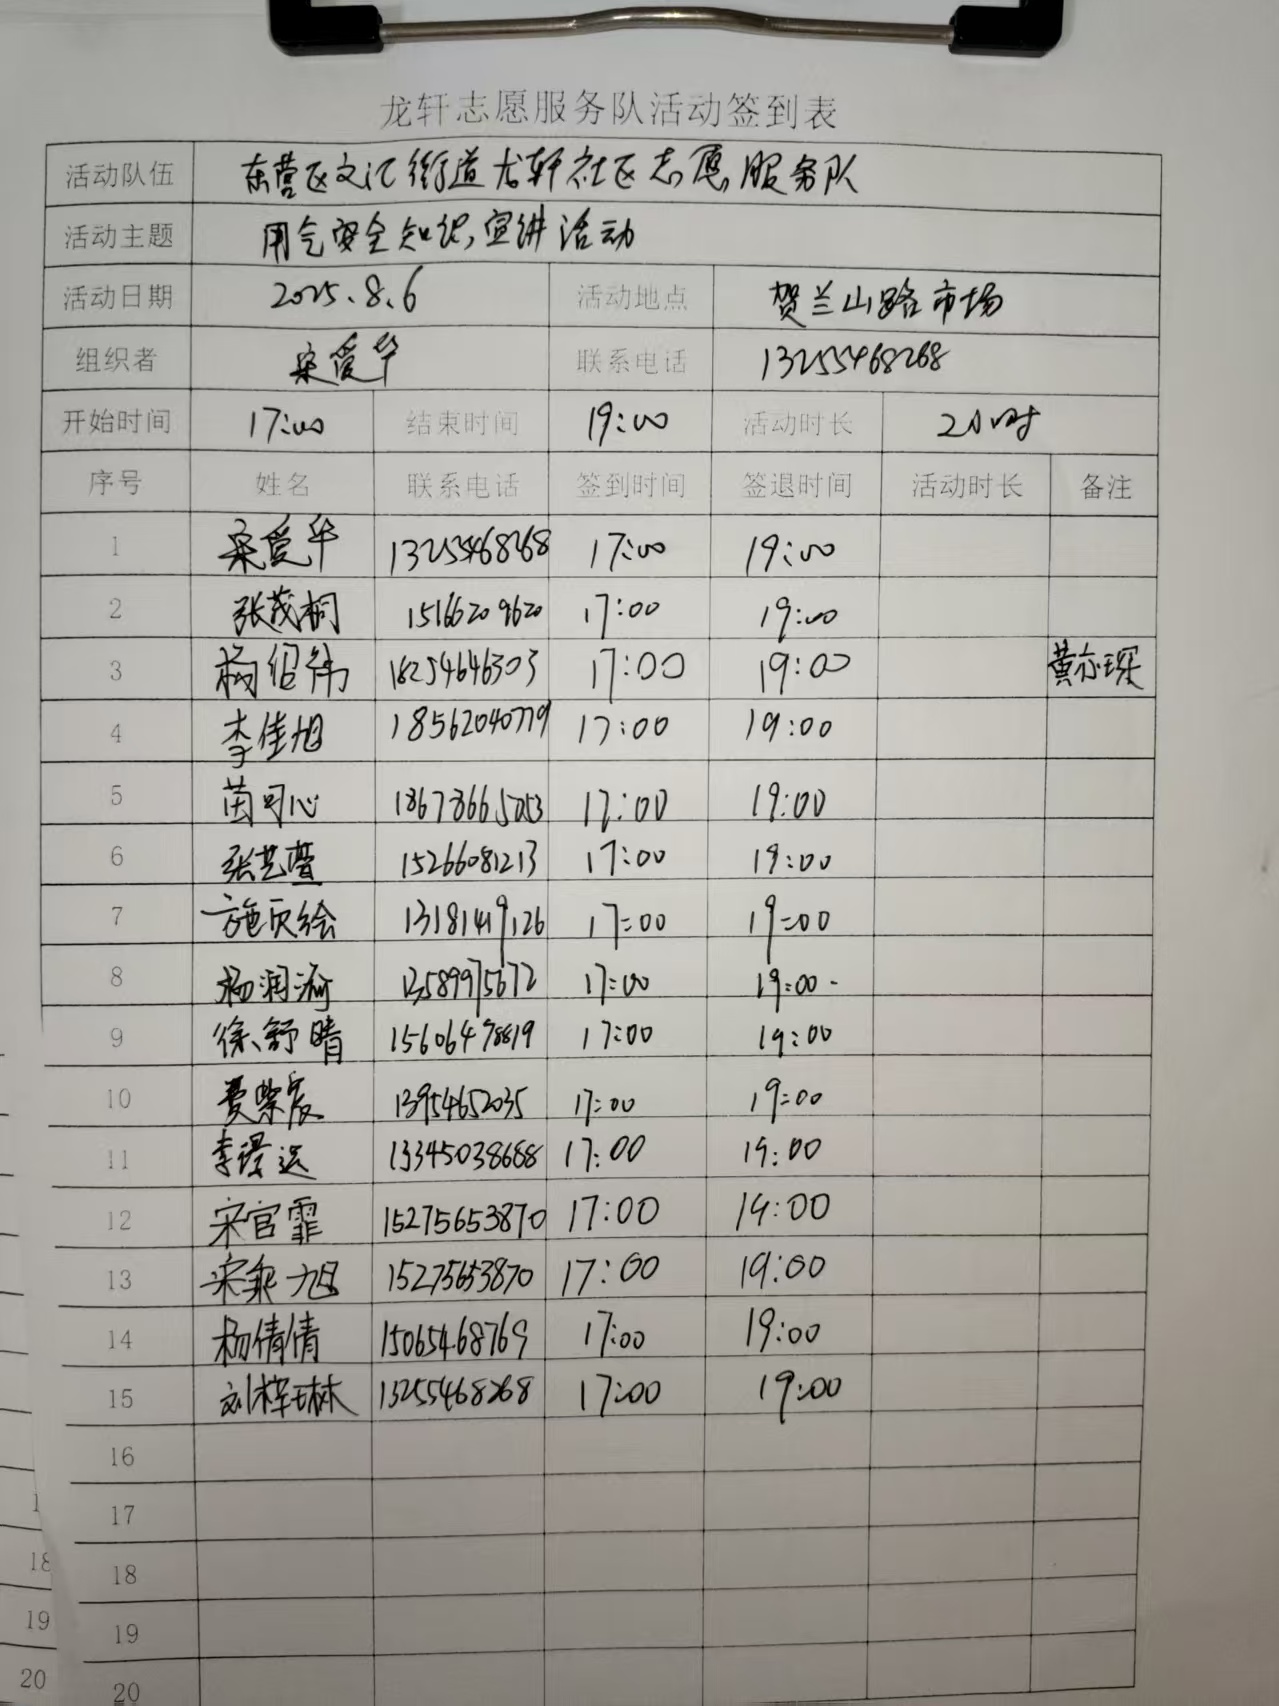 龙轩志愿服务队活动签到表
活动队伍 东营区文汇街道龙轩社区志愿服务队
活动主题 用气安全知识宣讲活动
活动日期 2025.8.6 活动地点 贺兰山路市场
组织者 宋爱华 联系电话 13255468268
开始时间 17:00 结束时间 19:00 活动时长 2小时
序号 姓名 联系电话 签到时间 签退时间 活动时长 备注
1 宋爱华 13255468268 17:00 19:00
2 张茂桐 15166209620 17:00 19:00
3 杨绍伟 18254646303 17:00 19:00 黄亦琛
4 李佳旭 18562040779 17:00 19:00
5 苗可心 17:00 19:00
6 张艺萱 15266081213 17:00 19:00
7 施页绘 13181419126 17:00 19:00
8 杨润渝 13589975672 17:00 19:00
9 徐舒晴 15606478819 17:00 19:00
10 13954652035 17:00 19:00
11 13345038688 17:00 19:00
12 宋官霏 15275653870 17:00 19:00
13 宋乘旭 15275653870 17:00 19:00
14 杨倩倩 15065468769 17:00 19:00
15 刘梓琳 13255468268 17:00 19:00
16
17
18
19
20
18
19
20